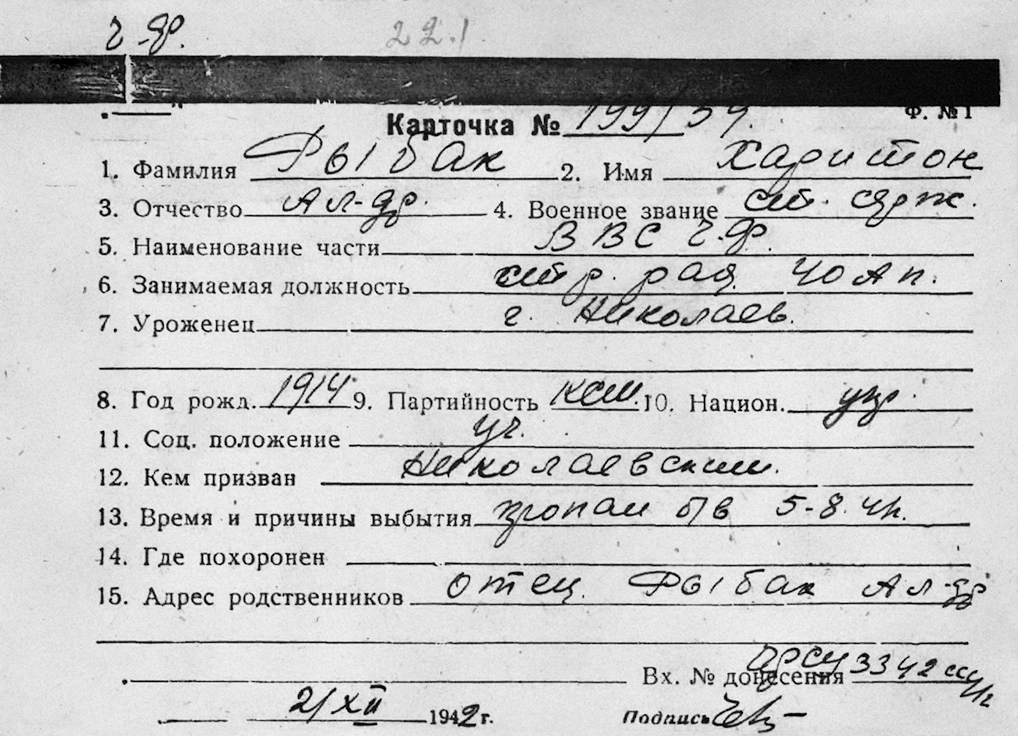 ч.ф. 22.1
Ф. №1
Карточка № 199/39.
1. Фамилия Рыбак 2. Имя Харитон
3. Отчество Ал-др. 4. Военное звание ст. серж.
5. Наименование части ВВС Ч.Ф.
6. Занимаемая должность стр. рад. 40 А п.
7. Уроженец г. Николаев.
8. Год рожд. 1914 9. Партийность ксм. 10. Национ. укр.
11. Соц. положение уч.
12. Кем призван Николаевским.
13. Время и причины выбытия пропал б/в 5-8.
14. Где похоронен
15. Адрес родственников отец Рыбак Ал-др
Вх. № донесения 3342
21/XII 1942 г. Подпись